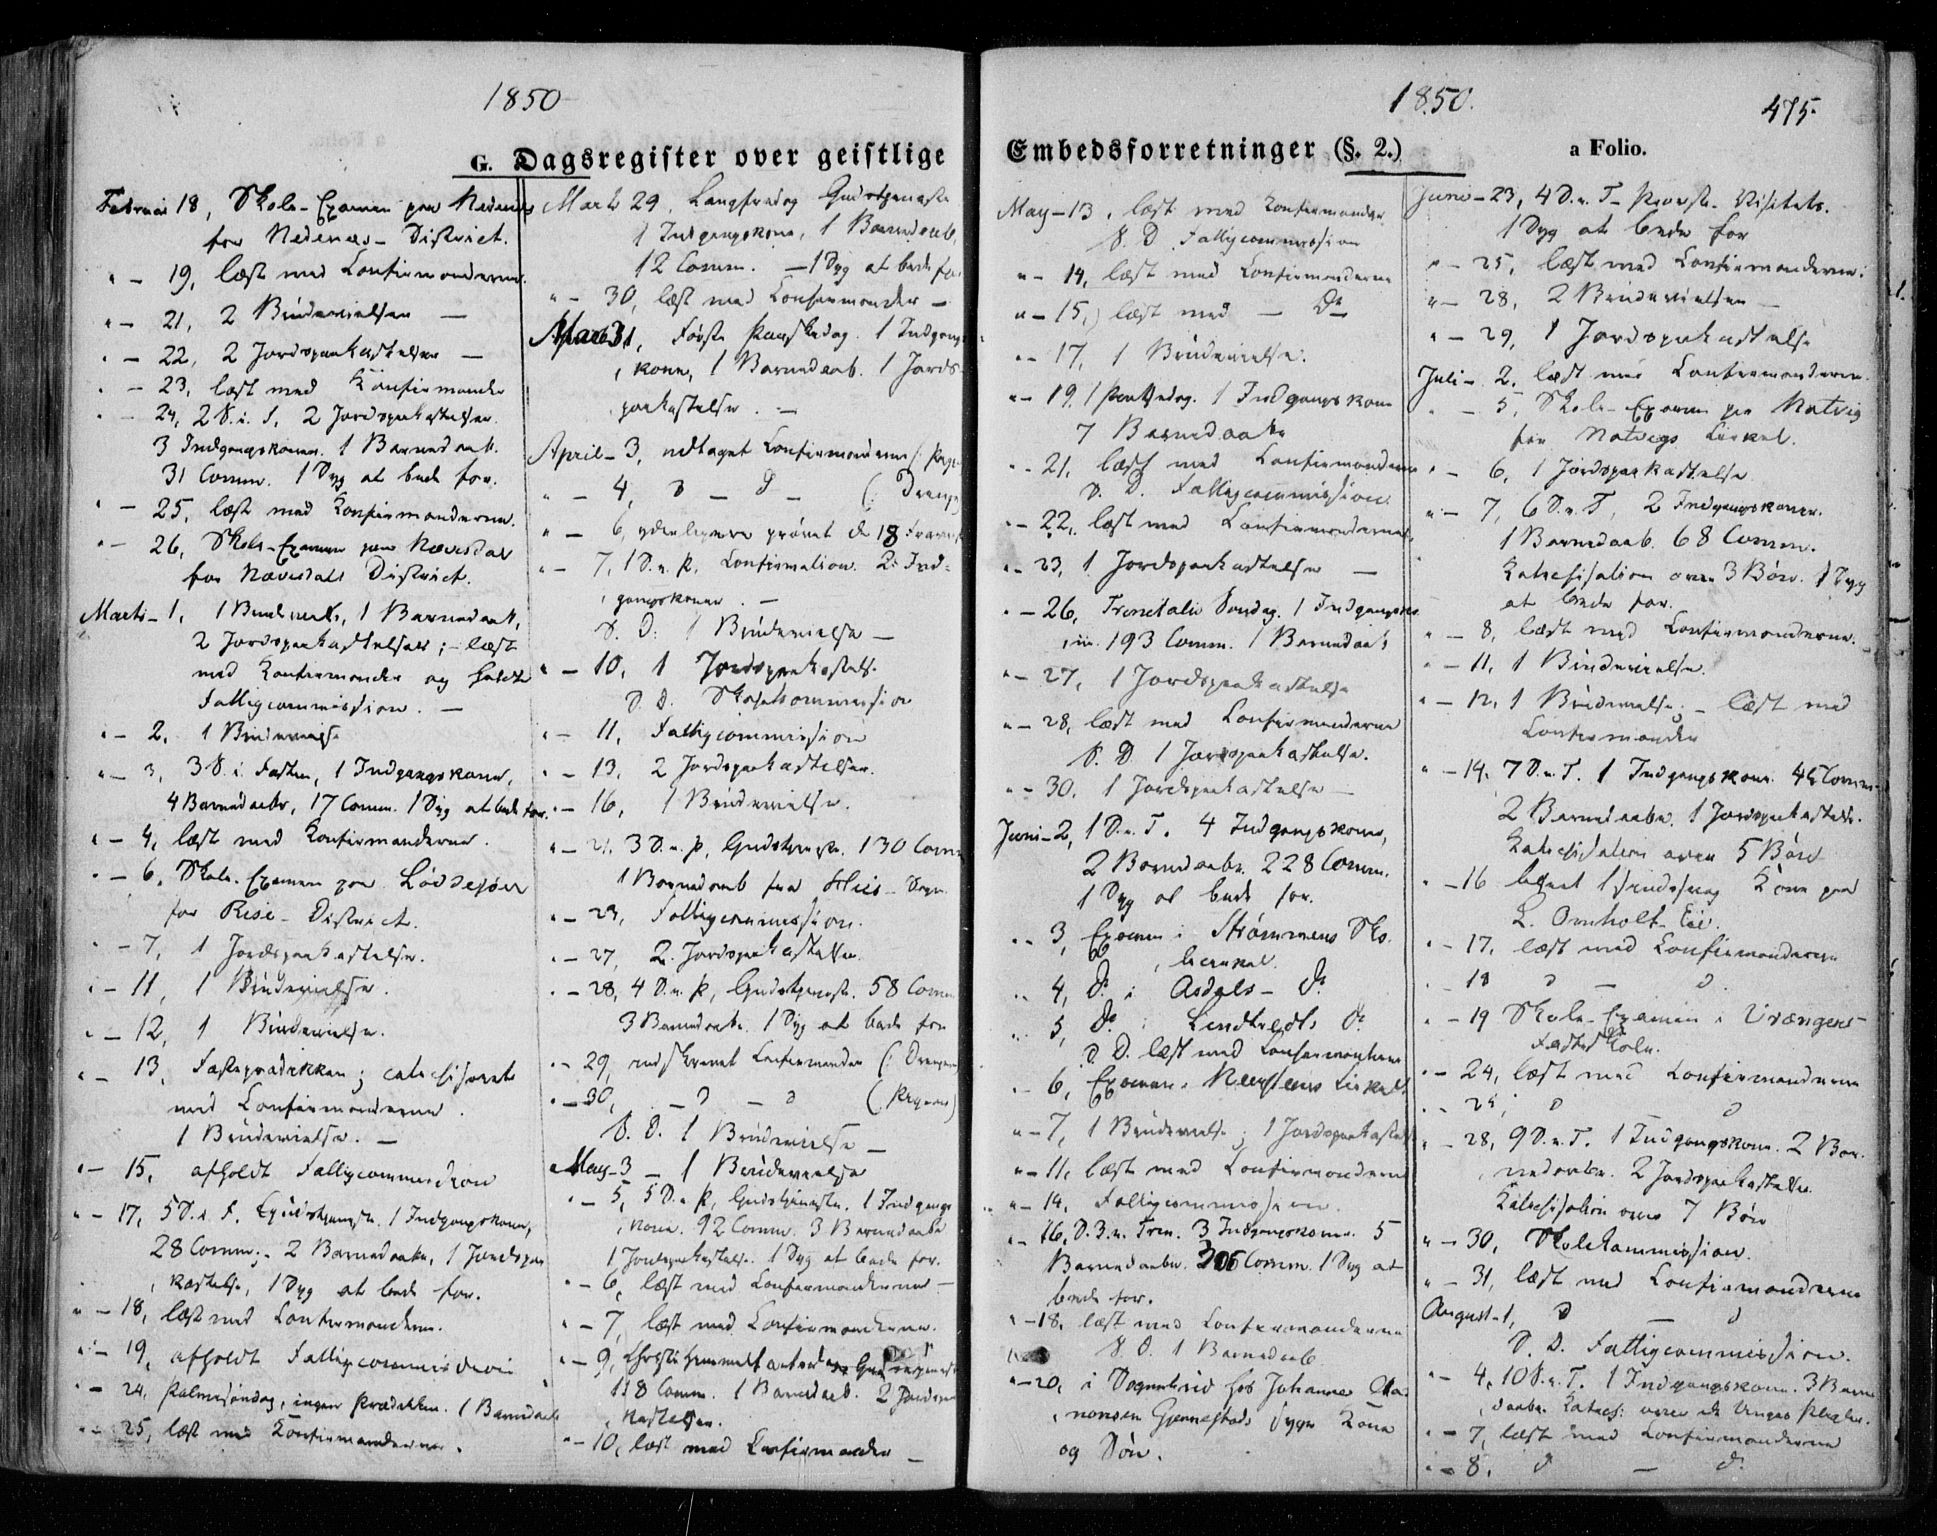 1850
G. Dagsregister over geistlige
Februar 18, Skole-Examen paa Nedenes
for Nedenæs-District.
" - 19, læst med Confirmanderne.
" - 21, 2 Brudevielser —
" - 22, 2 Jordspaakastelser —
" - 23, læst med Konfirmander
" - 24, 2 S. i. F. 2 Jordspaakastelser.
3 Indgangskoner. 1 Barnedaab.
31 Comm. 1 Syg at bede for.
" - 25, læst med Konfirmanderne.
" - 26, Skole-Examen paa Næresdal
for Næresdals District.
Marts - 1, 1 Brudevielse, 1 Barnedaab,
2 Jordspaakastelser; - læst
med Konfirmander og holdt
Fattigcommission. —
" - 2, 1 Brudevielse
" - 3, 3 S. i. Fasten, 1 Indgangskone,
4 Barnedaabe, 17 Comm. 1 Syg at bede for.
" - 4, læst med Konfirmanderne.
" - 6, Skole-Examen paa Løddesjøen
for Rise-District.
" - 7, 1 Jordspaakastelse.
" - 11, 1 Brudevielse.
" - 12, 1 Brudevielse.
" - 13, Fasteprædikken; catechiserede
med Confirmanderne.
1 Brudevielse. —
" - 15, afholdt Fattigcommission
" - 17, 5 S. i. F. Gudstjeneste. 1 Indgangskone,
28 Comm; - 2 Barnedaabe, 1 Jordspaa
kastelse, 1 Syg at bede for.
" - 18, læst med Confirmandern.
" - 19, afholdt Fattigcommission
" - 24. Palmesøndag, ingen Prædikken. 1 Barnedaab
" - 25, læst med Konfirmanderne.
Marts 29, Langfredag Gudstjeneste
1 Indgangskone, 1 Barnedaab,
12 Comm. — 1 Syg at bede for
" - 30, læst med Confirmander —
Marts 31, Første Paaskedag. 1 Indgangs
kone, 1 Barnedaab. 1 Jords-
paakastelse. —
April - 3, udtaget Confirmanderne (: Piger
" - 4, D - D - (: Drenge
" - 6, yderligere prøvet de 18
" - 7, 1 S. e. P. Confirmation. 2 Ind-
gangskoner. —
S. D. 1 Brudevielse —
" - 10, 1 Jordspaakastelse
S. D. Skolekommission
" - 11, Fattigcommission
" - 13, 2 Jordspaakastelser.
" - 16, 1 Brudevielse.
" - 21. 3 S. e. P. Gudstjeneste. 130 Comm
1 Barnedaab fra Hiis-Sogn.
" - 23, Fattigcommission.
" - 27, 2 Jordspaakastelser.
" - 28, 4 S. e. P, Gudstjeneste. 58 Comm
3 Barnedaabe. 1 Syg at bede for
" - 29, indskrevet Confirmander (: Drenge
" - 30, - D - D (: Pigerne)
S. D. 1 Brudevielse —
May - 3 - 1 Brudevielse
" - 5, 5 S. e P, Gudstjeneste. 1 Indgangs
kone. 92 Comm. 3 Barnedaabe
1 Jordspaakastelse. 1 Syg at bede for.
" - 6, læst med Confirmanderne —
" - 7, læst med Confirmanderne.
" - 9, Christi Himmelfartsdag Gudstjeneste
118 Comm. 1 Barnedaab. 2 Jordspaa
kastelser.
" - 10, læst med Confirmander —
1850.
475.
Embedsforretninger (§. 2.)
a Folio.
May - 13, læst med Confirmander
S. D. Fattigcommission
" - 14, læst med Confirmanderne
" - 15, læst med — Do
" - 17, 1 Brudevielse.
" - 19, 1 Pentsedag. 1 Indgangskone
7 Barnedaabe
" - 21, læst med Confirmanderne
S. D. Fattigcommission.
" - 22, læst med Confirmanderne.
" - 23, 1 Jordspaakastelse —
" - 26, Trinitatis Søndag. 1 Indgangskone
193 Comm. 1 Barnedaab
" - 27, 1 Jordspaakastelse
" - 28, læst med Confirmanderne
S. D. 1 Jordspaakastelse.
" - 30. 1 Jordspaakastelse —
Juni - 2, 1 S. e. T. 4 Indgangskoner,
2 Barnedaabe. 228 Comm.
1 Syg at bede for.
" - 3, Examen i Strømmens Sko-
lecirkel.
" - 4, Do i Asdals - Do
" - 5, Do i Do
S. D. læst med Confirmanderne
" - 6, Examen i Cirkel
" - 7, 1 Brudevielse; 1 Jordspaakastelse
" - 11, læst med Confirmanderne
" - 14, Fattigcommission.
" - 16, S. 3. e. Trin. 3 Indgangskoner. 5
Barnedaabe. 306 Comm. 1 Syg at
bede for.
" - 18, læst med Confirmanderne
S. D. 1 Barnedaab
" - 20, i Sognebud hos Johanne
Gjennestads syge Kone
og Søn.
Juni - 23, 4 S. e. T. Provste-Visitats.
1 Syg at bede for
" - 25, læst med Confirmanderne.
" - 28, 2 Brudevielser —
" - 29, 1 Jordspaakastelse
Juli - 2. læst med Confirmanderne.
" - 5, Skole-Examen paa Natvig
for Natvigs Cirkel.
" - 6, 1 Jordspaakastelse
" - 7, 6 S. e. T, 2 Indgangskoner.
1 Barnedaab. 68 Comm.
Katechisation over 3 Børn. 1 Syg
at bede for.
" - 8, læst med Confirmanderne.
" - 11, 1 Brudevielse.
" - 12, 1 Brudevielse, - læst med
Confirmander
" - 14. 7 S. e. T. 1 Indgangskone. 42 Comm.
2 Barnedaabe. 1 Jordspaakastelse.
Katechisation over 5 Børn
" - 16 1 Kone paa
L. Omholt-Eie.
" - 17, læst med Confirmanderne
" - 18 D — D.
" - 19 Skole-Examen i Vrængens-
Fastskole.
" - 24, læst med Confirmanderne
" - 25, D D
" - 28, 9 S. e. T. 1 Indgangskone. 2 Bar-
nedaabe. 2 Jordspaakastelser.
Katechisation over 7 Børn
" - 30, Skolekommission.
" - 31, læst med Confirmanderne
August - 1, D — D
S. D. Fattigcommission.
" - 4, 10 S. e. T. 1 Indgangskone. 3 Barne
daabe. Katech: over de Unges Pligter.
" - 7, læst med Confirmanderne
" - 8, D — D.